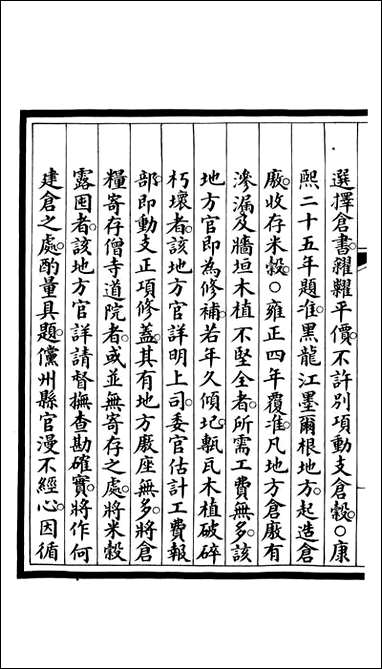 選擇倉書糴糶平價不許別項動支倉穀○康
熙二十五年題准黑龍江墨爾根地方起造倉
廒收存米穀○雍正四年覆准凡地方倉廒有
滲漏及牆垣木植不堅全者所需工費無多該
地方官即為修補若年久傾圮甎瓦木植破碎
朽壞者該地方官詳明上司委官估計工費報
部即動支正項修葢其有地方廒座無多將倉
糧寄存僧寺道院者或並無寄存之處將米穀
露囤者該地方官詳請督撫查勘確實將作何
建倉之處酌量具題儻州縣官漫不經心因循